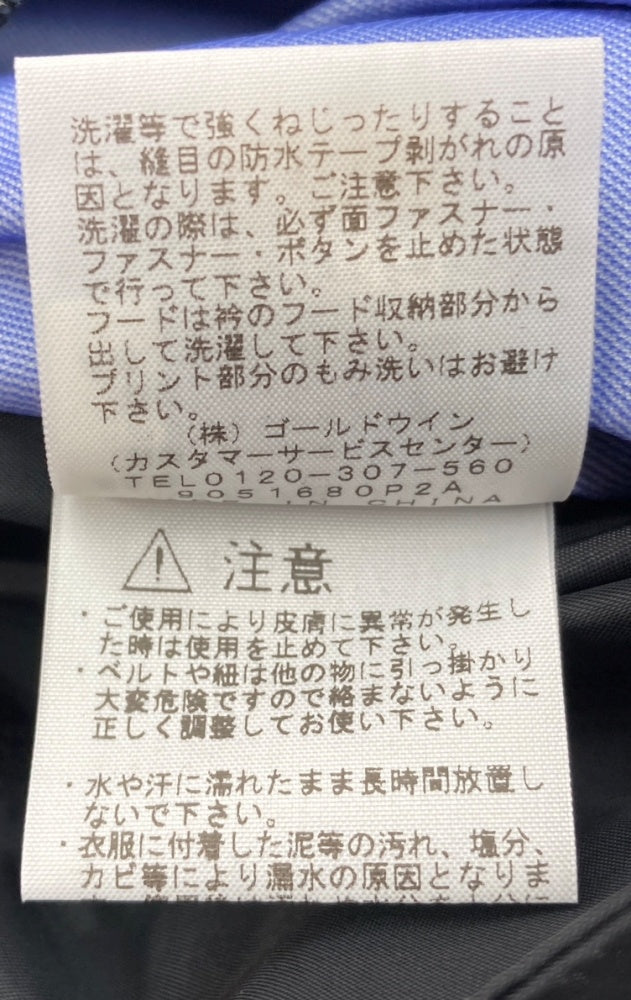 洗濯等で強くねじったりすること
は、縫目の防水テープ剥がれの原
因となります。ご注意下さい。
洗濯の際は、必ず面ファスナー・
ファスナー・ボタンを止めた状態
で行って下さい。
フードは衿のフード収納部分から
出して洗濯して下さい。
プリント部分のもみ洗いはお避け
下さい。
(株) ゴールドウイン
(カスタマーサービスセンター)
TEL0120-307-560
9051680P2A
IN CHINA
注意
・ご使用により皮膚に異常が発生し
た時は使用を止めて下さい。
・ベルトや紐は他の物に引っ掛かり
大変危険ですので絡まないように
正しく調整してお使い下さい。
・水や汗に濡れたまま長時間放置し
ないで下さい。
・衣服に付着した泥等の汚れ、塩分、
カビ等により漏水の原因となりま